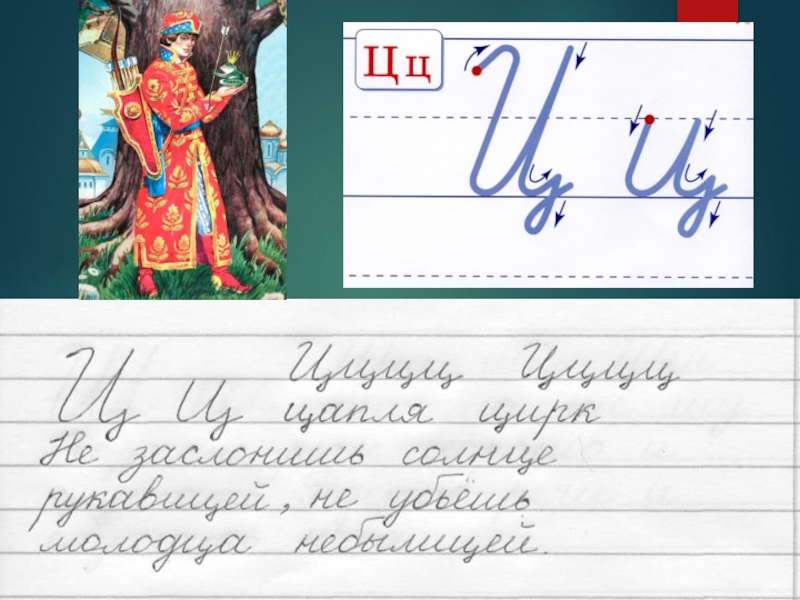 Ц ц
Ц ц
Цццц Цццц
Ц Ц цапля цирк
Не заслонишь солнце
рукавицей, не убьёшь
молодца небылицей.